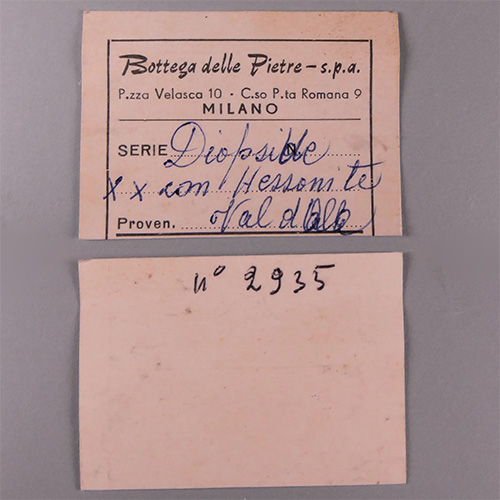 Bottega delle Pietre - s.p.a.
P.zza Velasca 10 - C.so P.ta Romana 9
MILANO
SERIE Diopside N.
x x con Hessonite
Proven. Val d'Ala
n° 2935